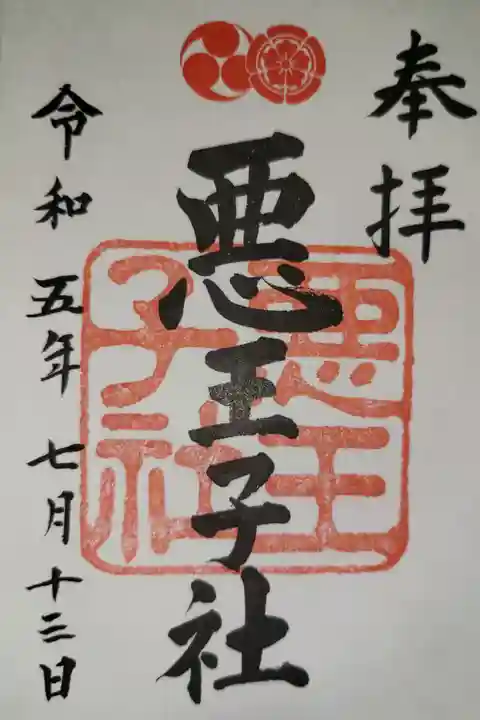 奉拝
悪王子社
悪王子社
令和五年七月十三日